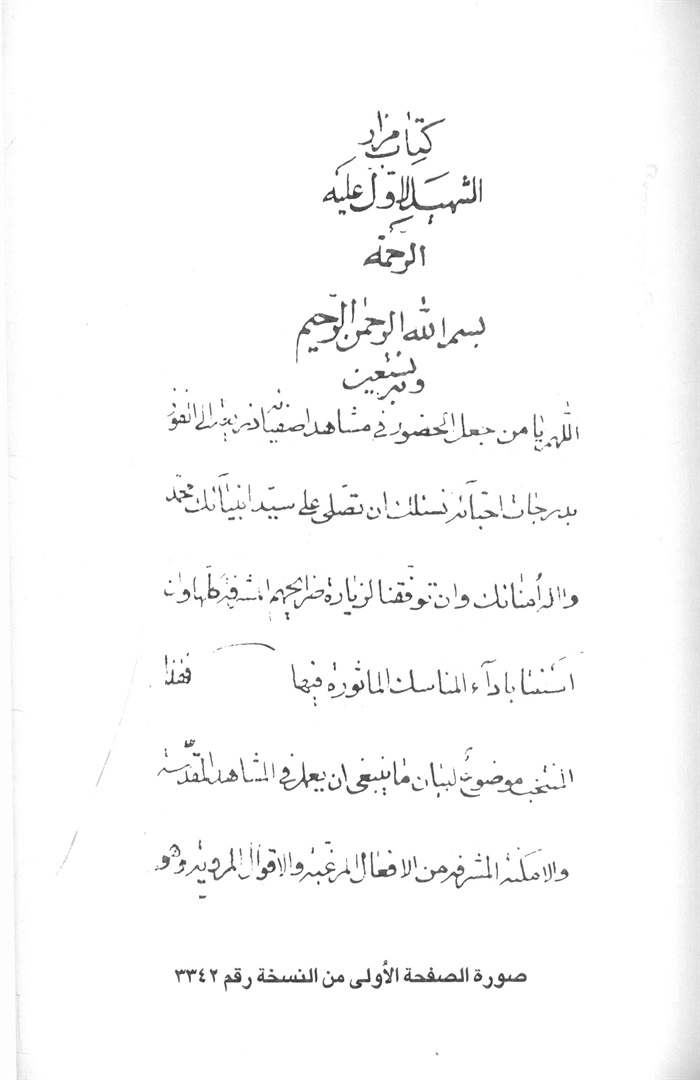 كتاب مزار
الشهيد الاوّل عليه
الرّحمة
بسم الله الرحمن الرّحيم
وبه نستعين
اللهم يا من جعل الحضور في مشاهد اصفيائه ذريعة الى الفوز
بدرجات احبّائه نسئلك ان تصلّى على سيّد انبيائك محمد
واله امنائك وان توفّقنا لزيارة ضرايحهم المشرفة كلها وان
بادآء المناسك الماثورة فيها فهذا
المنتخب موضوع لبيان ما ينبغى ان يعمل في المشاهد المقدّسة
والامكنة المشرفه من الافعال المرغبة والاقوال المروية وهو
صورة الصفحة الأولى من النسخة رقم ٣٣٤٢